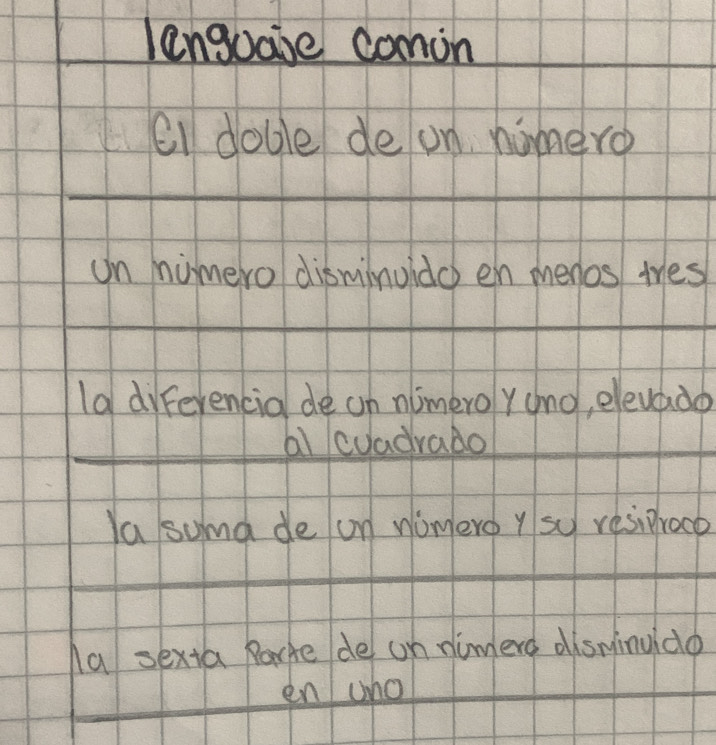 lenguaje común
El doble de un número
un número disminuido en menos tres
la diferencia de un número y uno, elevado
al cuadrado
la suma de un número y su resiproco
la sexta Parte de un número disminuido
en uno